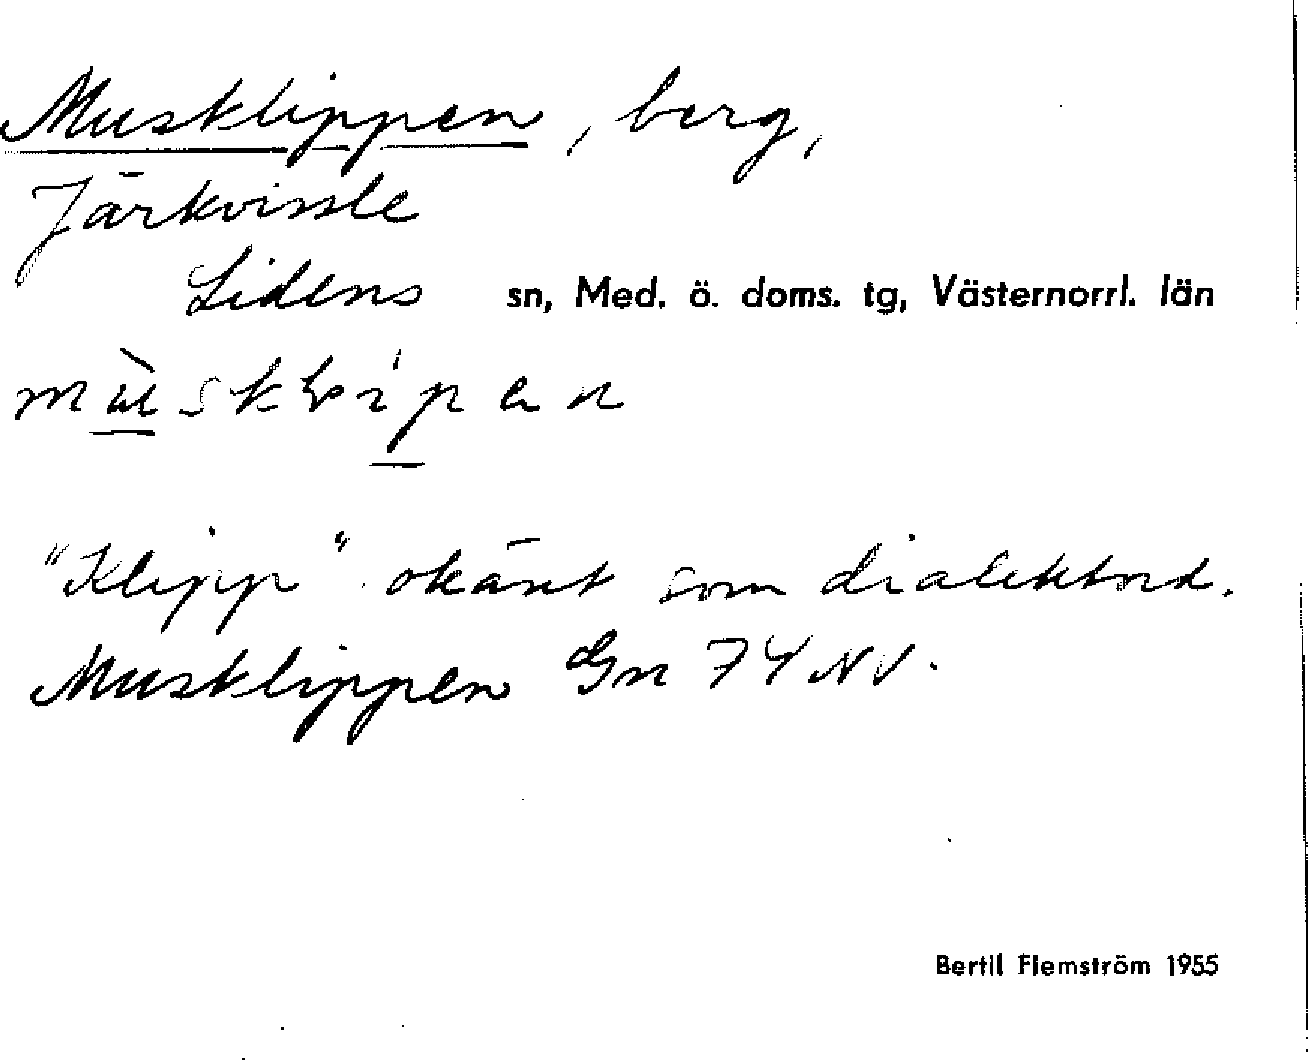 Musklippen, berg,
Järkvissle
Lidens sn, Med. ö. doms. tg, Västernorrl. län
mùsklipen
"Klipp" okänt som dialektord.
Musklippen Gn 74 NV.
Bertil Flemström 1955